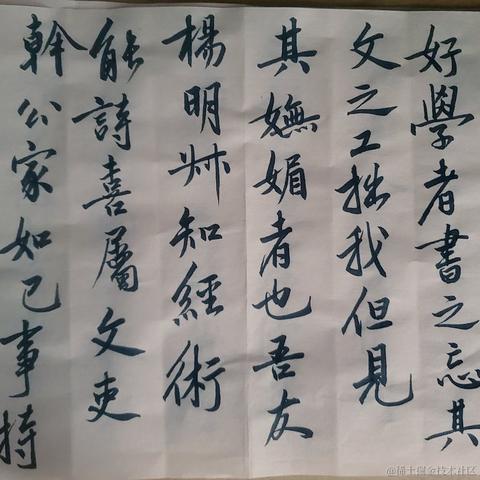 好學者書之忘其
文之工拙我但見
其嫵媚者也吾友
楊明艸知經術
能詩喜屬文吏
幹公家如己事持
@稀土掘金技术社区